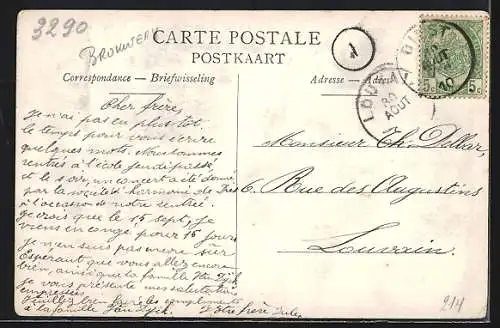 3290
BROUWERY
CARTE POSTALE
POSTKAART
Correspondance — Briefwisseling
Adresse — Adres
1
DIEST
20
AOUT
10
LOUVAIN
20
AOUT
5c 5c
Cher frère,
Je n'ai pas eu plus tôt
le temps pour vous écrire
quelques mots. Nous sommes
rentrés à l'école jeudi passé
et le soir, un concert a été donné
par la société harmonie de Diest
à l'occasion de notre rentrée.
Je crois que le 15 sept, je
viens en congé pour 15 jours
je n'en suis pas encore sûr
Esperant que vous allez encore
bien, ainsi que la famille Van Dyck
je vous présente mes salutations
Empressées
Veuillez bien faire les compliments
à la famille Van Dyck. Votre frère Jules
Monsieur Th. Dillar,
6, Rue des Augustins
Louvain.
214